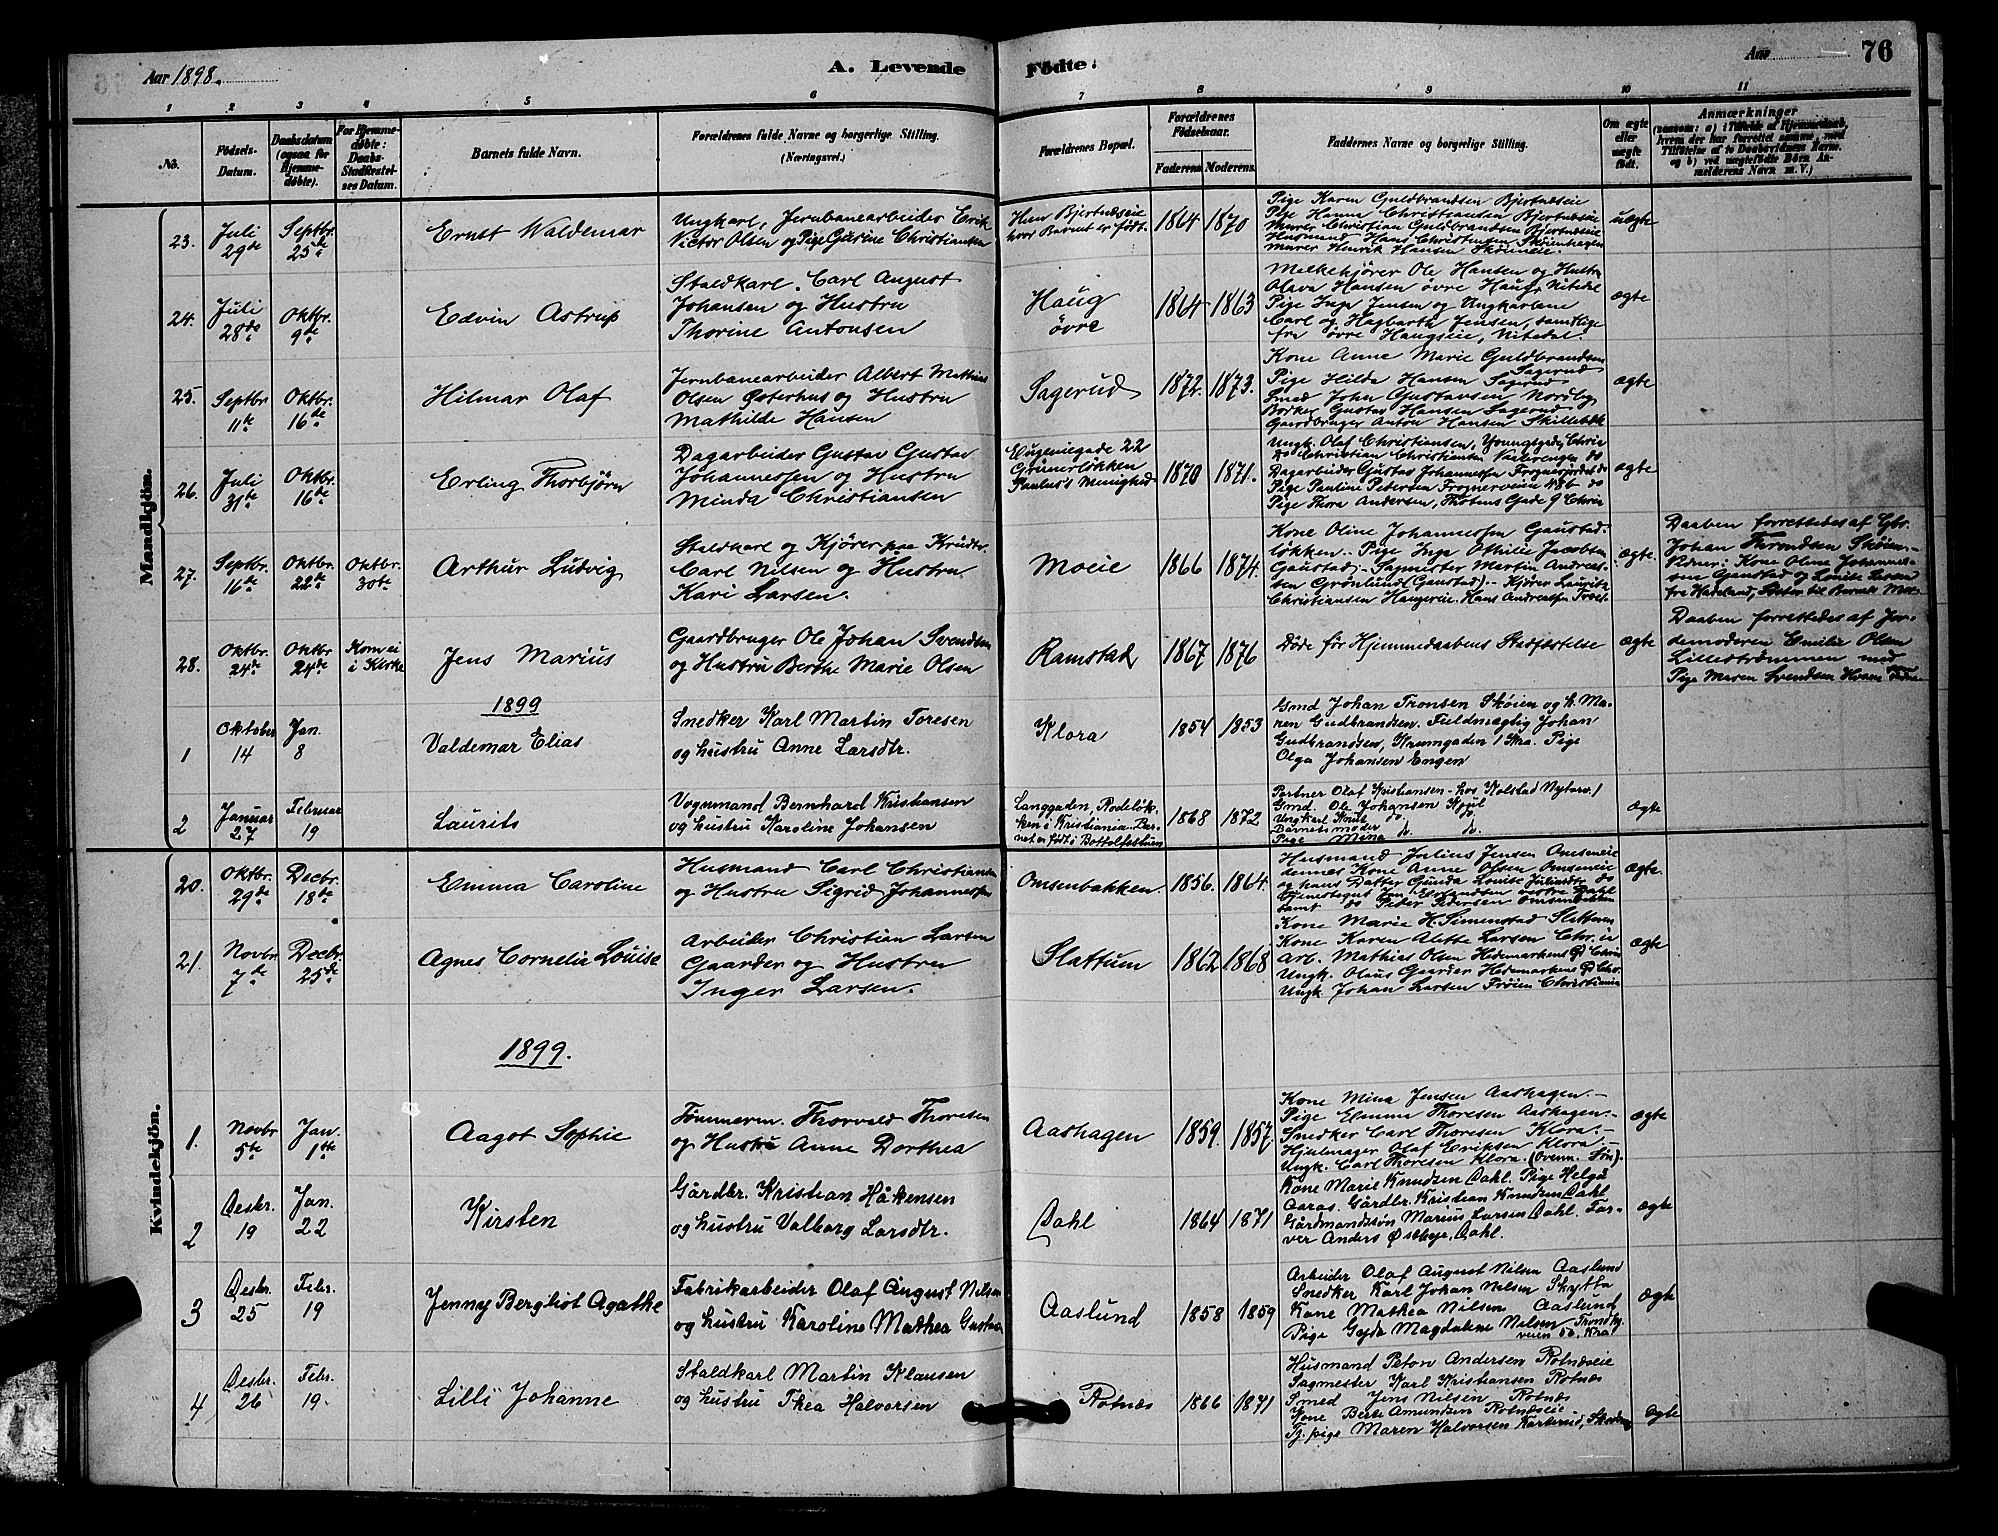 Aar 1898.
A. Levende
Fødte.
Aar
76
1 2 3 4 5 6 7 8 9 10 11
No.
Fødsels-Datum.
Daabsdatum (ogsaa for Hjemme-døbte).
For Hjemme-døbte: Daabs-Stadfæstel-ses Datum.
Barnets fulde Navn.
Forældrenes fulde Navne og borgerlige Stilling. (Næringsvei.)
Forældrenes Bopæl.
Forældrenes Fødselsaar.
Faderens Moderens
Faddernes Navne og borgerlige Stilling.
Om ægte eller uægte født.
Anmærkninger
(saasom: a) i Tilfælde af Hjemmedaab, hvem der har forrettet samme, med Tilføielse af to Daabsvidners Navne, og b) ved uægtefødte Børn An-melderens Navn m. V.)
Mandkjön.
23.
Juli 29de
Septbr. 25de
Ernst Waldemar
Ungkarl, Jernbanearbeider Erik
Victor Olsen og Pige Gurine Christiansen
Hun Bjertnæseie
hvor Barnet er født.
1864 1870
Pige Karen Guldbrandsen Bjertnæseie
Pige Hanna Christiansen Bjertnæseie
Murer Christian Guldbrandsen Bjertnæseie
Husmand Hans Christensen Skøienhagen
Murer Henrik Hansen Skøieneie.
uægte
24.
Juli 28de
Oktbr. 9de
Edvin Astrup
Staldkarl. Carl August
Johansen og Hustru
Thorine Antonsen
Haug
øvre
1864 1863
Melkekjører Ole Hansen og Hustru
Olava Hansen øvre Haug, Nitedal
Pige Inga Jensen og Ungkarlene
Carl og Hagbarth Jensen, samtlige
fra øvre Haugseie, Nitedal.
ægte
25.
Septbr 11te
Oktbr. 16de
Hilmar Olaf
Jernbanearbeider Albert Mathias
Olsen Østerhus og Hustru
Mathilde Hansen
Sagerud
1872. 1873.
Kone Anne Marie Guldbrandsen
Sagerud
Pige Hilda Hansen Sagerud
Smed John Gustavsen Nordby
Bødker Gustav Hansen Sagerud
Gaardbruger Anton Hansen Skillebæk
ægte
26.
Juli 31te
Oktbr. 16de
Erling Thorbjörn
Dagarbeider Gustav Gustav
Johannessen og Hustru
Minda Christiansen
Eugeniegade 22
Grünerløkken
Paulus's Menighed
1870 1871.
Ungk. Olaf Christiansen, Youngsgade, Chria
Do Christian Christiansen Vaalerengen do
Dagarbeider Gustav Johannessen Frognerjordet do
Pige Pauline Pedersen Frognerveien 48b do
Pige Thora Andersen, Thotens Gade 9 Chria
ægte
27.
Septbr. 16de
Oktbr. 22de
Oktbr. 30te
Arthur Ludvig
Staldkarl og Kjører paa Krudtv.
Carl Nilsen og Hustru
Kari Larsen.
Moeie
1866 1874.
Kone Oline Johannessen Gaustad-
løkken. Pige Inga Othilie Jacobsen
Gaustad. Sagmester Martin Andreas-
sen Grønlund (Gaustad). Kjører Lauritz
Christiansen Haugereie. Hans Andreassen
ægte.
Daaben forrettedes af Gbr.
Johan Throndsen Skøien-
Vidner: Kone Oline Johannes-
sen Gaustad og Louise Larsen
fra Hadeland, Søster til Barnets Mor.
28.
Oktbr. 24de
Oktbr 24de
Kom ei i Kirke
Jens Marius
Gaardbruger Ole Johan Svendsen
og Hustru Berthe Marie Olsen
Ramstad
1867 1876
Døde før Hjemmedaabens Stadfæstelse
ægte
Daaben forrettedes af Jor-
demoderen Emilie Olsen
Lillestrømmen med
Pige Maren Svendsen
1899
1
Oktober 14
Jan. 8
Valdemar Elias
Snedker Karl Martin Toresen
og hustru Anne Larsdtr.
Klora
1854 1853
Gmd Johan Tronsen Skøien og k. Ma-
ren Gudbrandsen. Fuldmægtig Johan
Gudbrandsen, Krumgaden 1 Kra. Pige
Olga Johansen Engen
2
Januar 27
Februar 19
Laurits
Vognmand Bernhard Kristiansen
og hustru Karoline Johansen
Langgaden, Rodeløk-
ken i Kristiania. Bar-
net er født i Bottolfsstuen
1868 1872
Portner Olaf Kristiansen - hos Kolstad
Gmd. Ole Johansen Kjul
Ungkarl Knut do. do.
Barnets moder
Pige Mina do. do.
ægte
Kvindekjön.
20.
Oktbr. 29de
Decbr. 18de
Emma Caroline
Husmand Carl Christiansen
og Hustru Sigrid Johannessen
Omsenbakken.
1856. 1864.
Husmand Julius Jensen Omseneie
dennes Kone Anne Olsen Omseneie
og hans Datter Gunda Louise Juliusdtr do
vestre Dahl
samt do Peder Pedersen Omsenbakken
ægte.
21.
Novbr. 7de
Decbr. 25de
Agnes Cornelia Louise
Arbeider Christian Larsen
Gaarder og Hustru
Inger Larsen.
Slattum
1862 1868
Kone Marie H. Simenstad Slattum
Kone Karen Alette Larsen Chr.ia
Arb. Mathias Olsen Hedemarkens Gd Chr.
Ungk. Olaus Gaarder Hedemarkens Gd Chr.
Ungk. Johan Larsen Trøien Christiania
ægte
1899.
1.
Novbr 5te
Jan. 1ste
Aagot Sophie
Tømmerm. Thorvald Thoresen
og Hustru Anne Dorthea
Aashagen
1859. 1857.
Kone Mina Jensen Aashagen.
Pige Emma Thoresen Aashagen.
Snedker Carl Thoresen Klora.
Hjulmager Olaf Eriksen Klora.
Ungk. Carl Thoresen Klora. (Ovenn. Søn).
ægte
2
Desbr. 19
Jan. 22
Kirsten
Gårdbr. Kristian Håkensen
og hustru Valborg Larsdtr.
Dahl
1864 1871
Kone Marie Knudsen Dahl. Pige Helga
Aaras. Gårdbr. Kristian Knudsen Dahl
Gårdmandssøn Marius Larsen Dahl. Far-
ver Anders Østbye, Dahl.
ægte
3
Desbr. 25
Febr. 19
Jenny Bergliot Agathe
Fabrikarbeider Olaf August Nilsen
og hustru Karoline Mathea Gustavs
Aaslund
1858 1859
Arbeider Olaf August Nilsen Aaslund
Snedker Karl Johan Nilsen Skytta
Kone Mathea Nilsen Aaslund
Pige Gyda Magdalene Nilsen, Trondhj.
veien 56. Kra
ægte
4
Desbr. 26
Febr. 19.
Lilli Johanne
Staldkarl Martin Klausen
og hustru Thea Halvorsen
Rotnæs
1866 1871
Husmand Peter Andersen Rotnæseie
Sagmester Karl Kristiansen Rotnæs
Smed Jens Nilsen Rotnæs
Kone Berte Amundsen Rotnæseie
Tj. pige Maren Halvorsen Karterud, Skedsmo
ægte